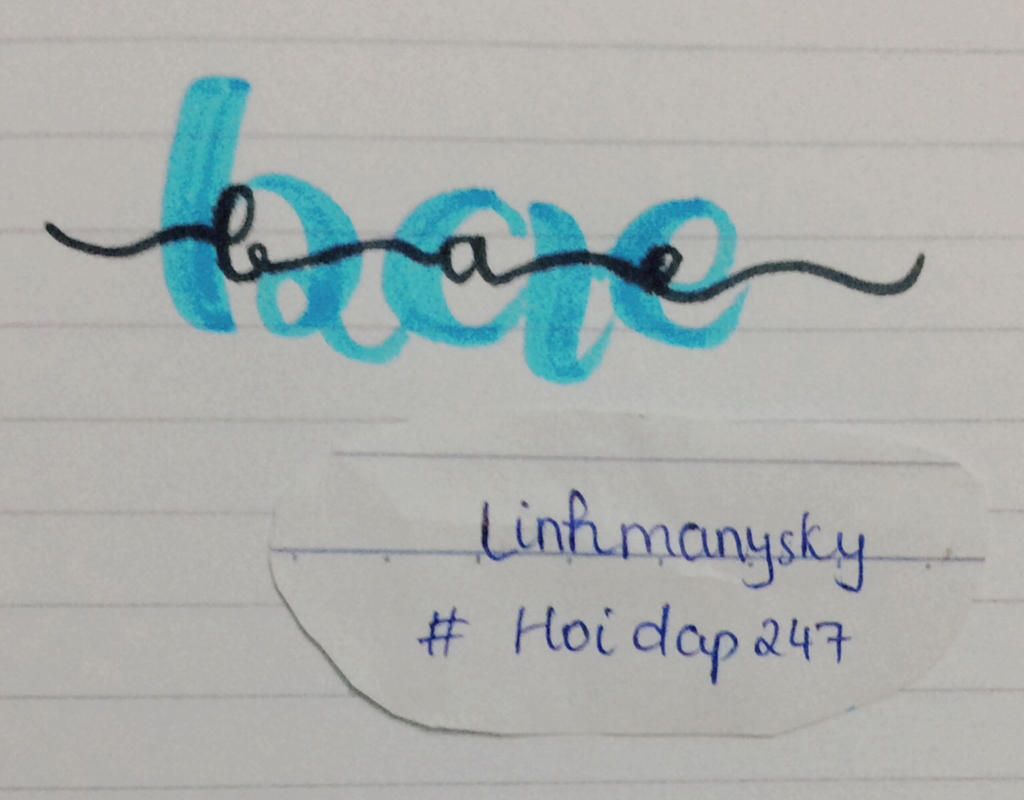 bae
bae
Linhmanysky
# Hoidap247